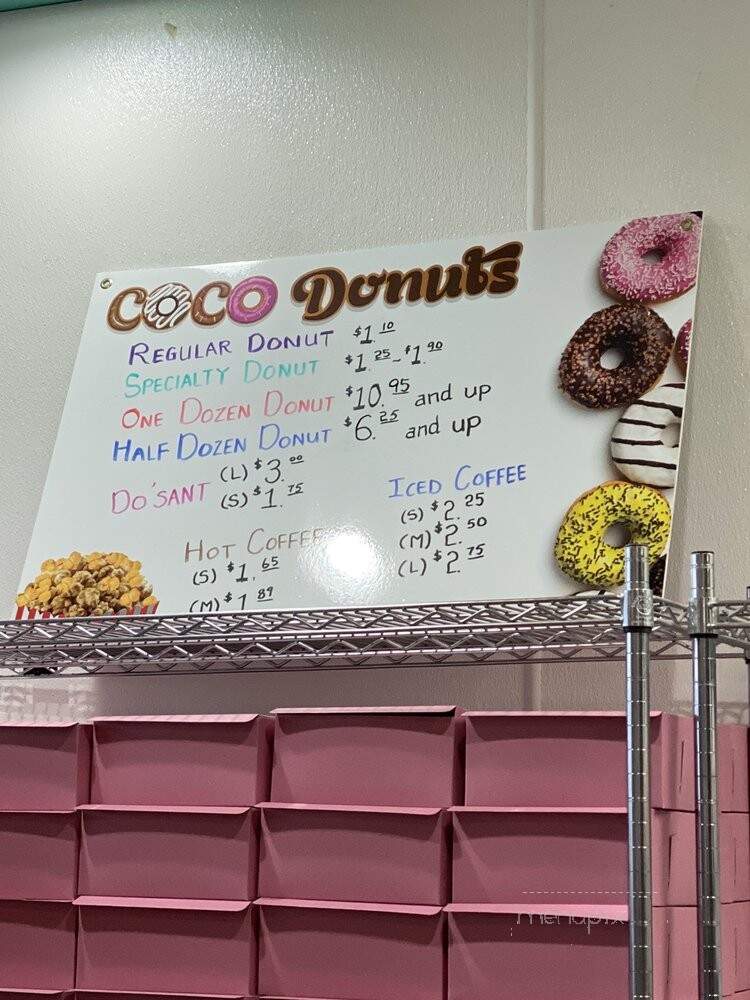 COCO Donuts
REGULAR DONUT $1.10
SPECIALTY DONUT $1.25-$1.90
ONE DOZEN DONUT $10.95 and up
HALF DOZEN DONUT $6.25 and up
DO'SANT (L) $3.00
(S) $1.75
HOT COFFEE
(S) $1.65
(M) $1.89
ICED COFFEE
(S) $2.25
(M) $2.50
(L) $2.75
menupix